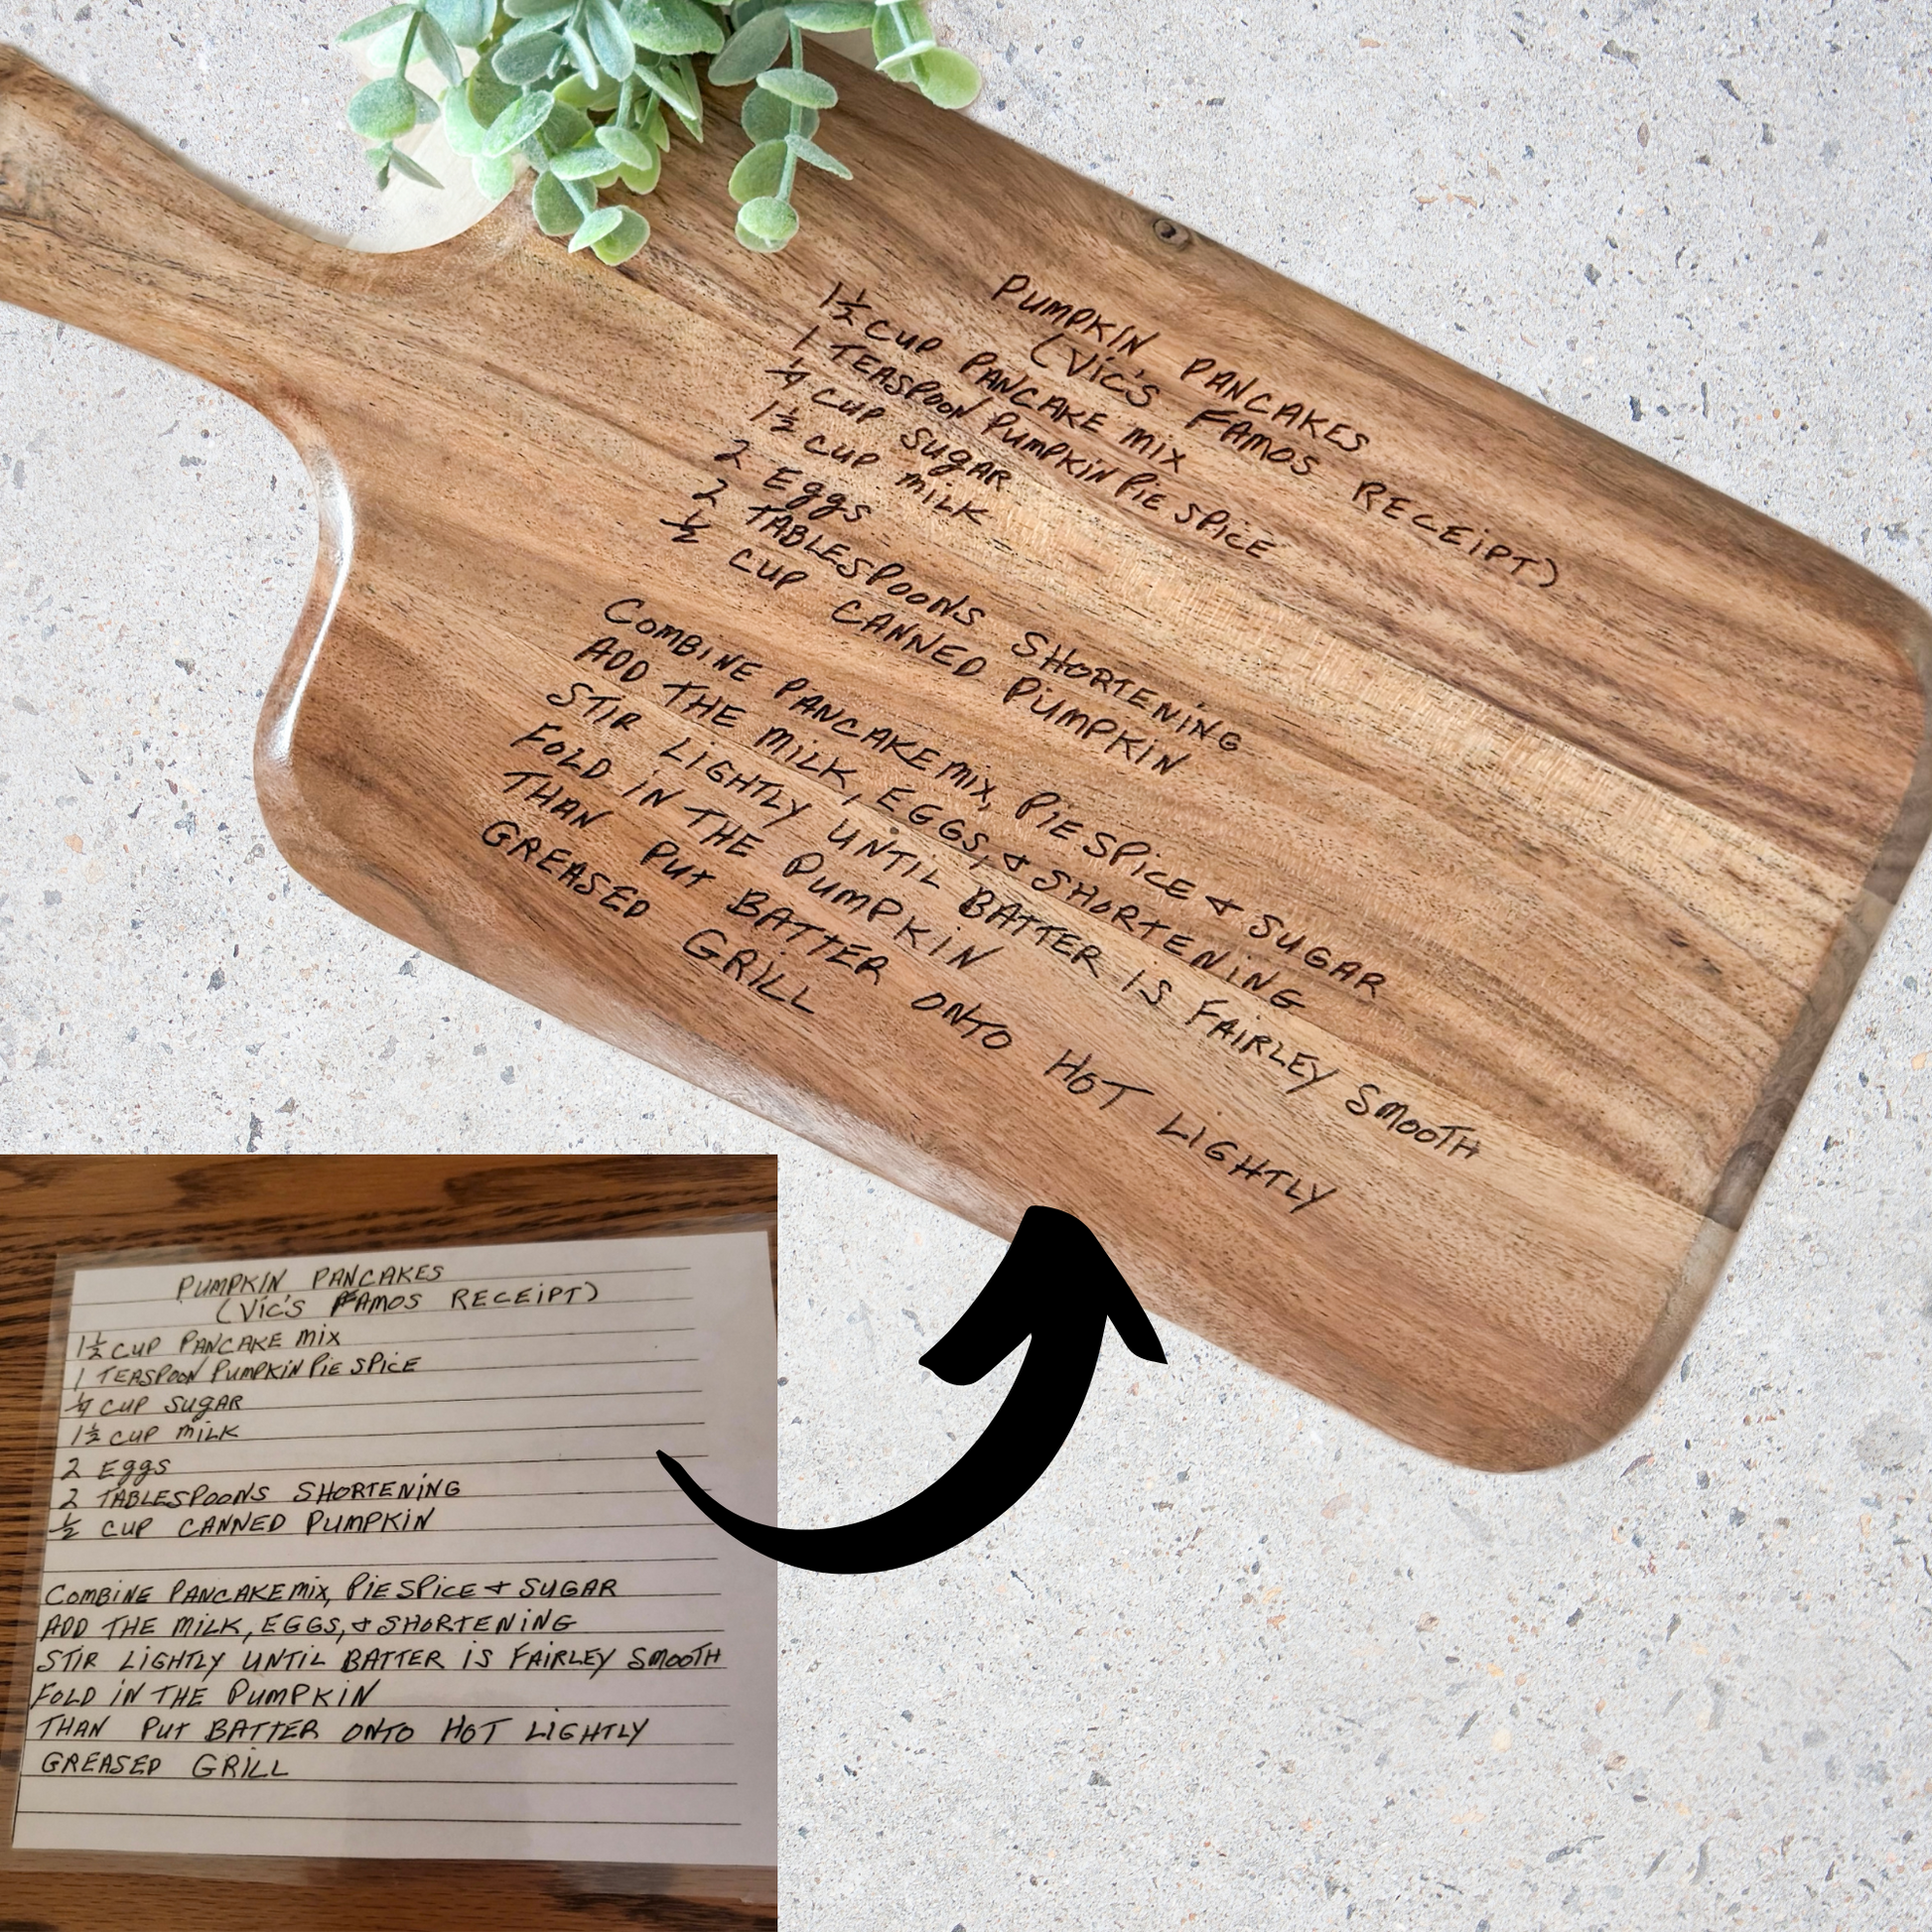 PUMPKIN PANCAKES
(Vic's FAMOS RECEiPT)
1½ CUP PANCAKE MiX
1 TEASPOON PUMPKIN PiE SPiCE
¼ CUP SUgAR
1½ CUP MiLK
2 Eggs
2 TABLESPOONS SHORTENiNG
½ CUP CANNED PUMPKiN
COMBiNE PANCAKE MiX, PiE SPiCE & SUGAR
ADD THE MiLK, EGGS, & SHORTENiNG
STiR LiGHTLY UNTiL BATTER iS FAiRLEY SMOOTH
FOLD iN THE PUMPKiN
THAN PUt BATTER ONTO HOT LiGHTLY
GREASED GRiLL
PUMPKIN PANCAKES
(Vic's FAMOS RECEiPT)
1½ CUP PANCAKE MiX
1 TEASPOON PUMPKIN PiE SPiCE
¼ CUP SUgAR
1½ CUP MiLK
2 Eggs
2 TABLESPOONS SHORTENiNG
½ CUP CANNED PUMPKiN
COMBiNE PANCAKE MiX, PiE SPiCE & SUGAR
ADD THE MiLK, EGGS, & SHORTENiNG
STiR LiGHTLY UNTiL BATTER iS FAiRLEY SMOOTH
FOLD iN THE PUMPKiN
THAN PUt BATTER ONTO HOT LiGHTLY
GREASED GRiLL